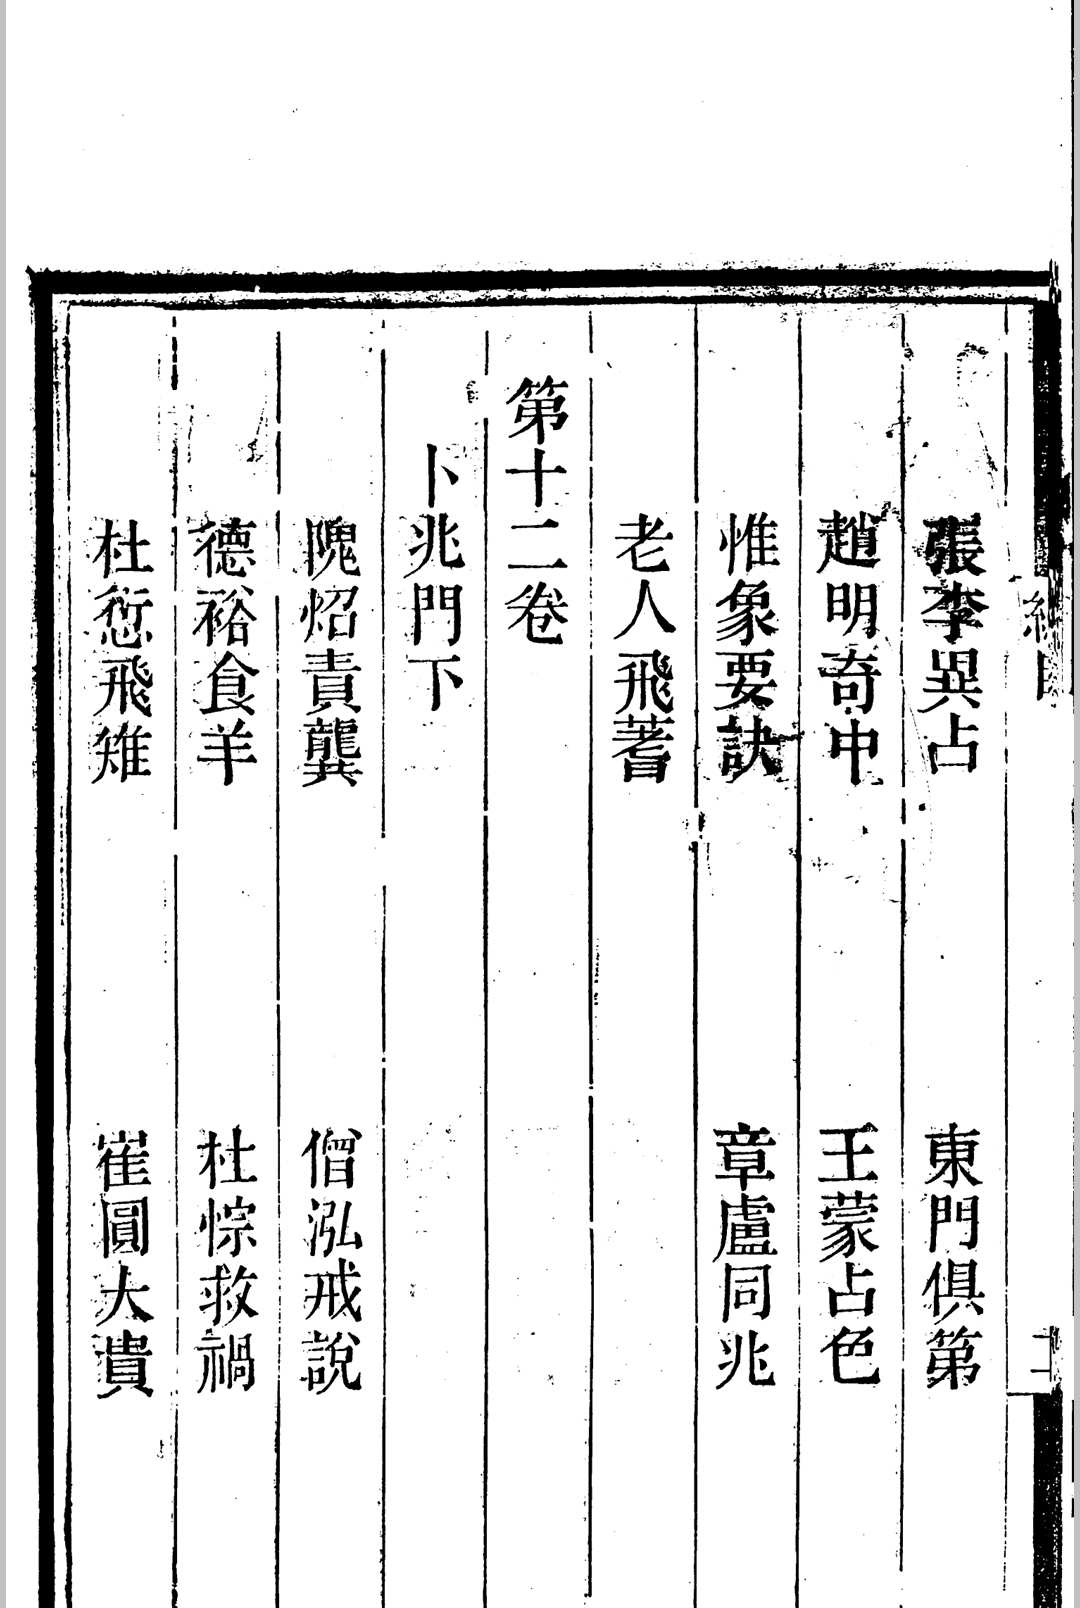 張李異占　東門俱第
趙明奇中　王蒙占色
惟象要訣　章盧同兆
老人飛蓍
第十二卷
卜兆門下
隗炤責龔　僧泓戒說
德裕食羊　杜悰救禍
杜愆飛雉　崔圓大貴